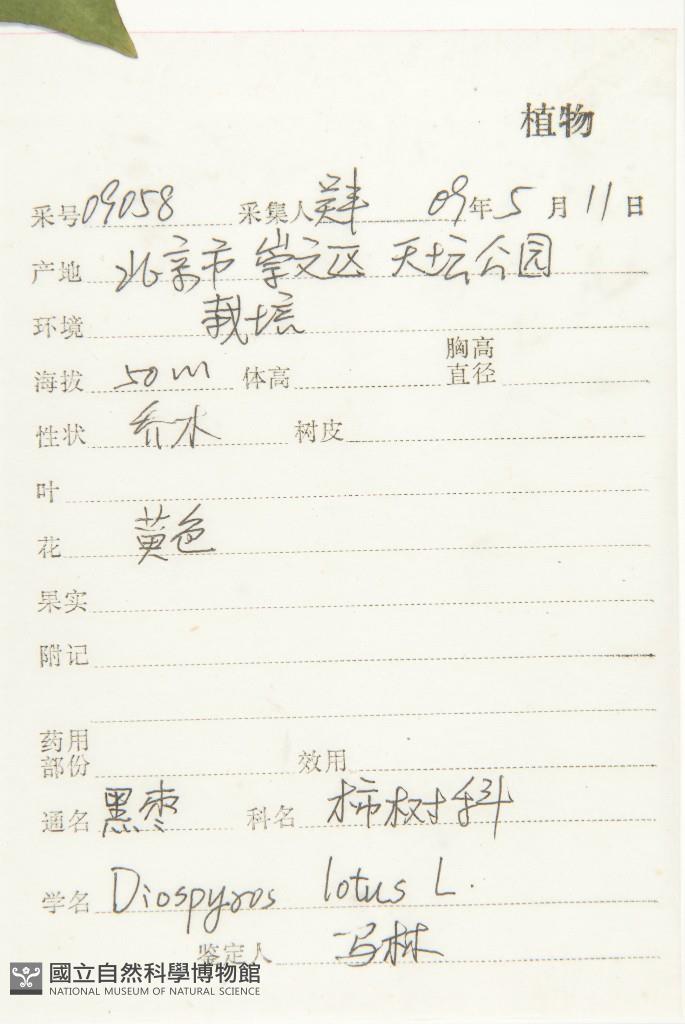 植物
采号 09058 采集人 吴丰 09年 5 月 11 日
产地 北京市 崇文区 天坛公园
环境 栽培
海拔 50m 体高 胸高直径
性状 乔木 树皮
叶
花 黄色
果实
附记
药用部份 效用
通名 黑枣 科名 柿树科
学名 Diospyros lotus L.
鉴定人 马林
國立自然科學博物館
NATIONAL MUSEUM OF NATURAL SCIENCE